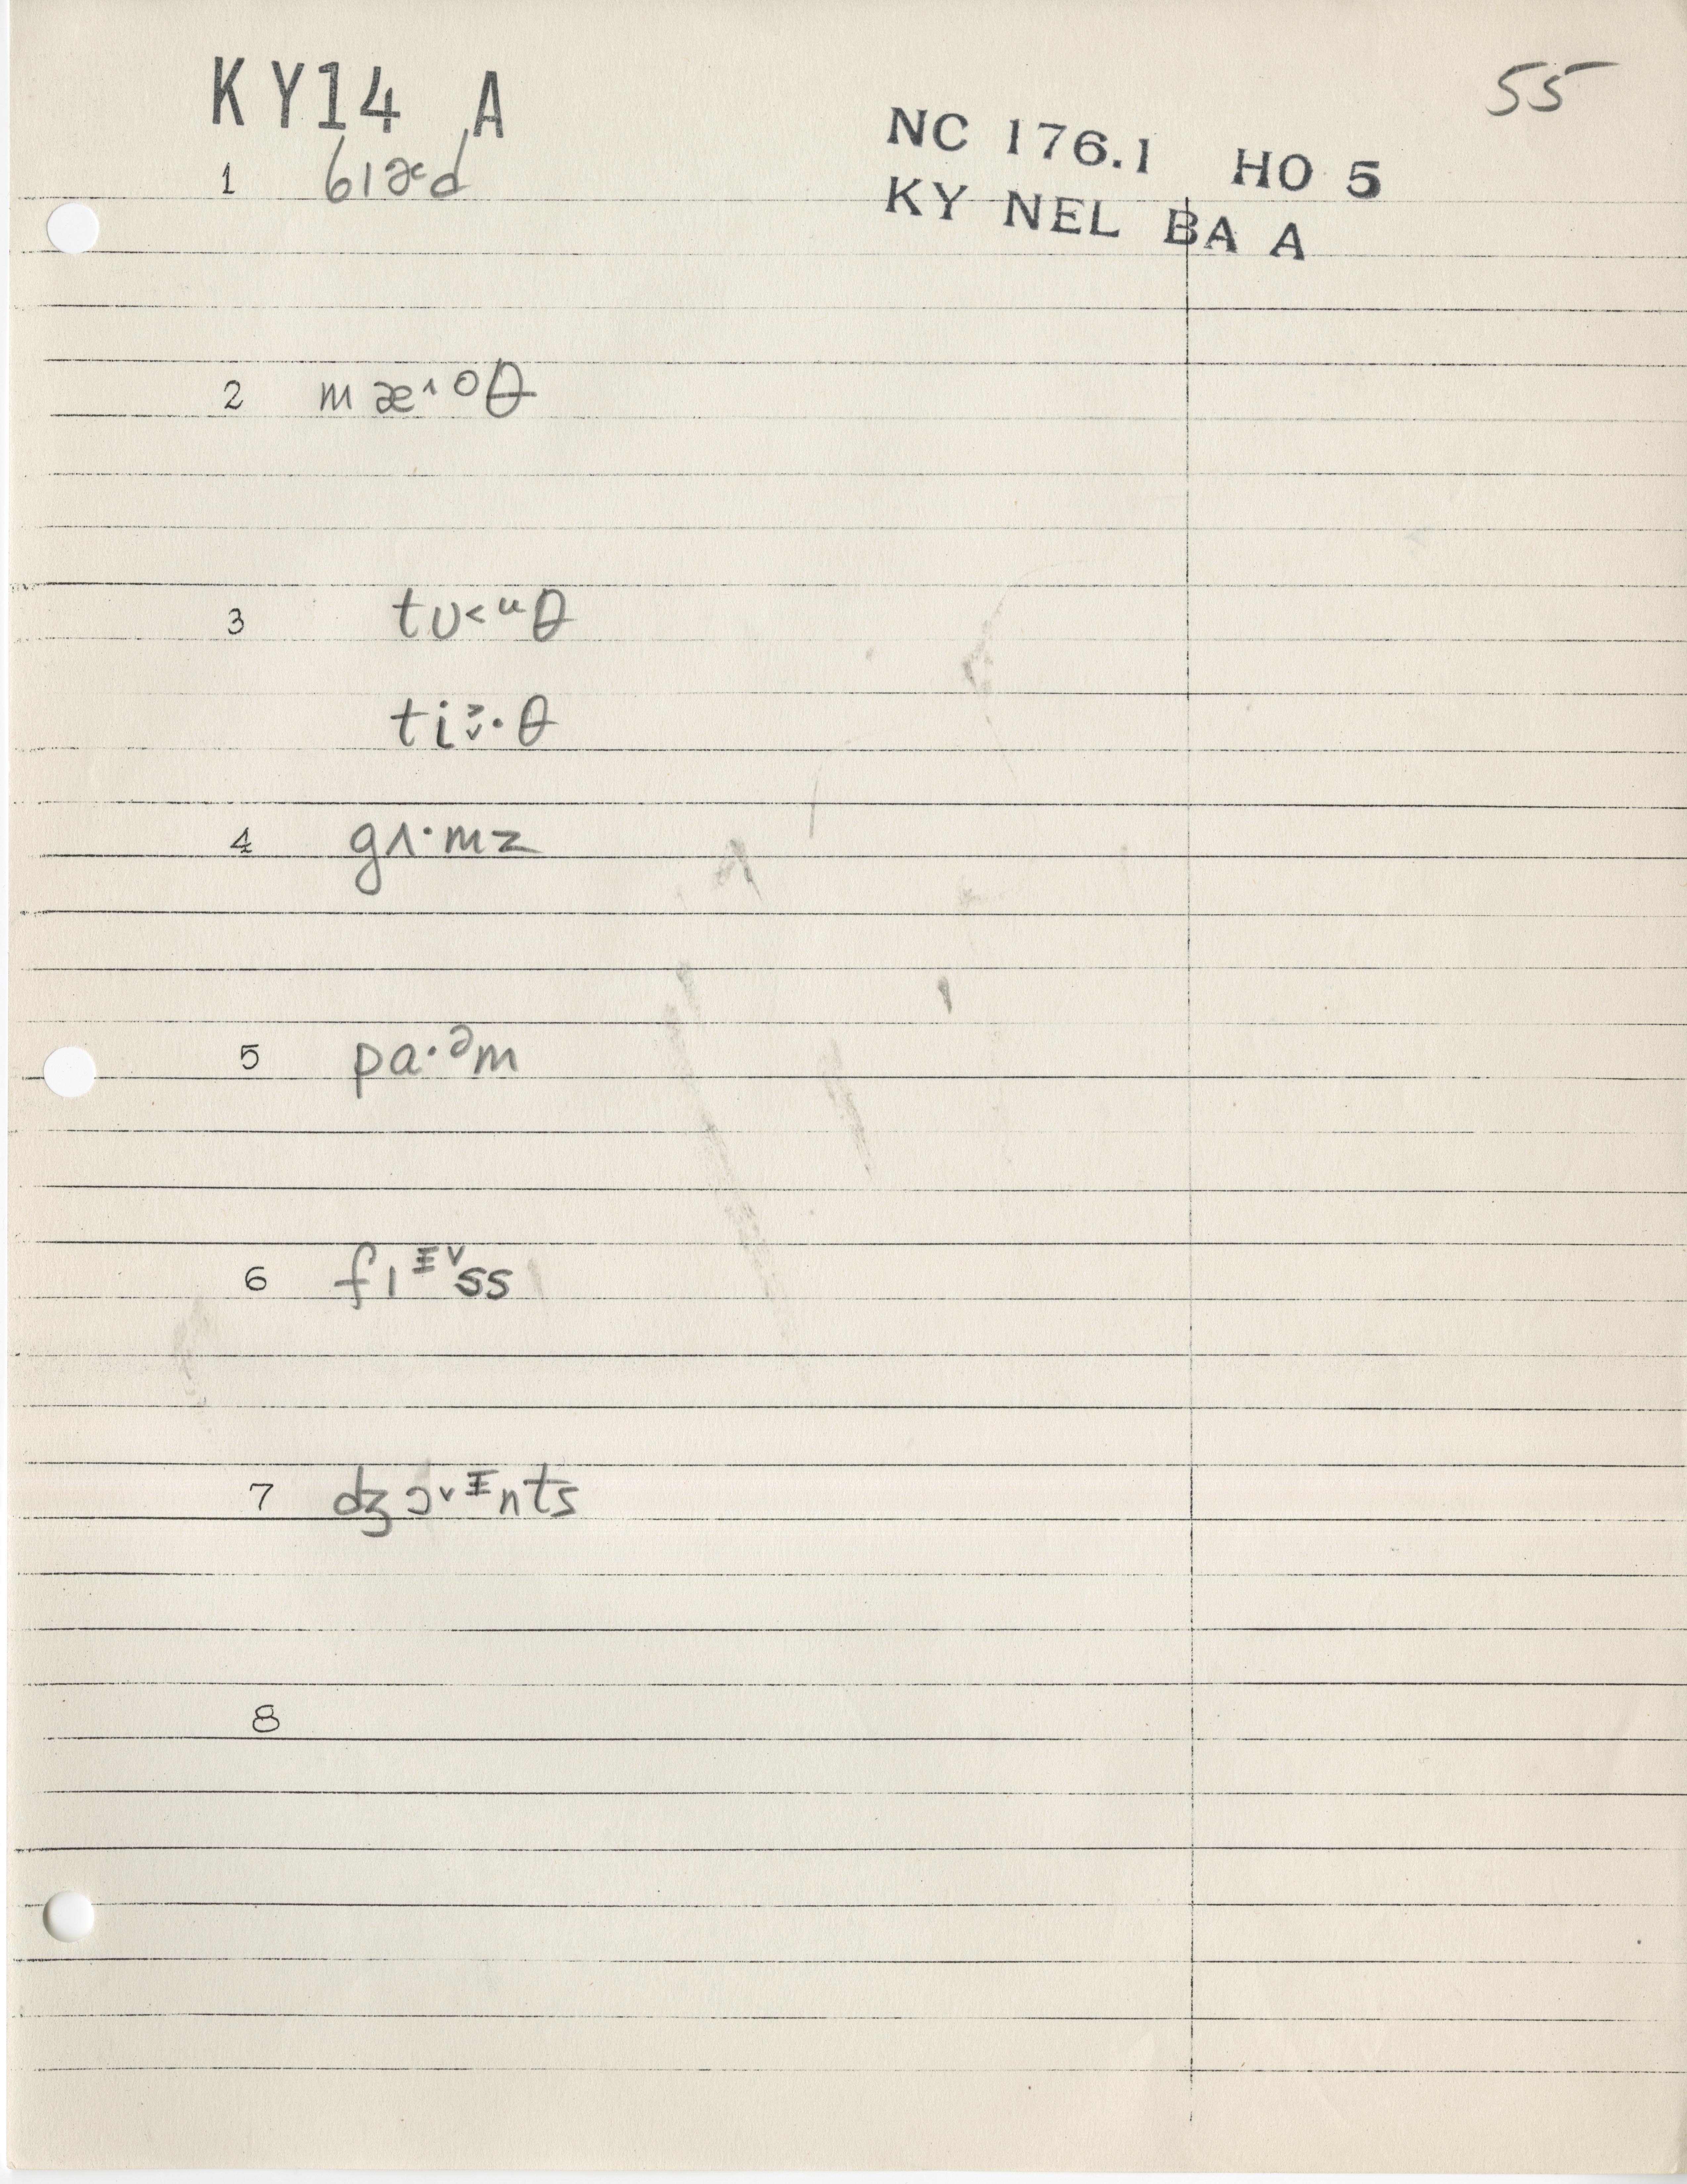 KY14 A
55
NC 176.1 HO 5
KY NEL BA A
1 bɪæ˂d
2 mæ˄·ᴼθ
3 tʊ˂ᵘθ
ti˃˅·θ
4 gʌ·mz
5 pa·ᵊm
6 fɪᶾ˅ss
7 dʒɔ˅ᶦnts
8